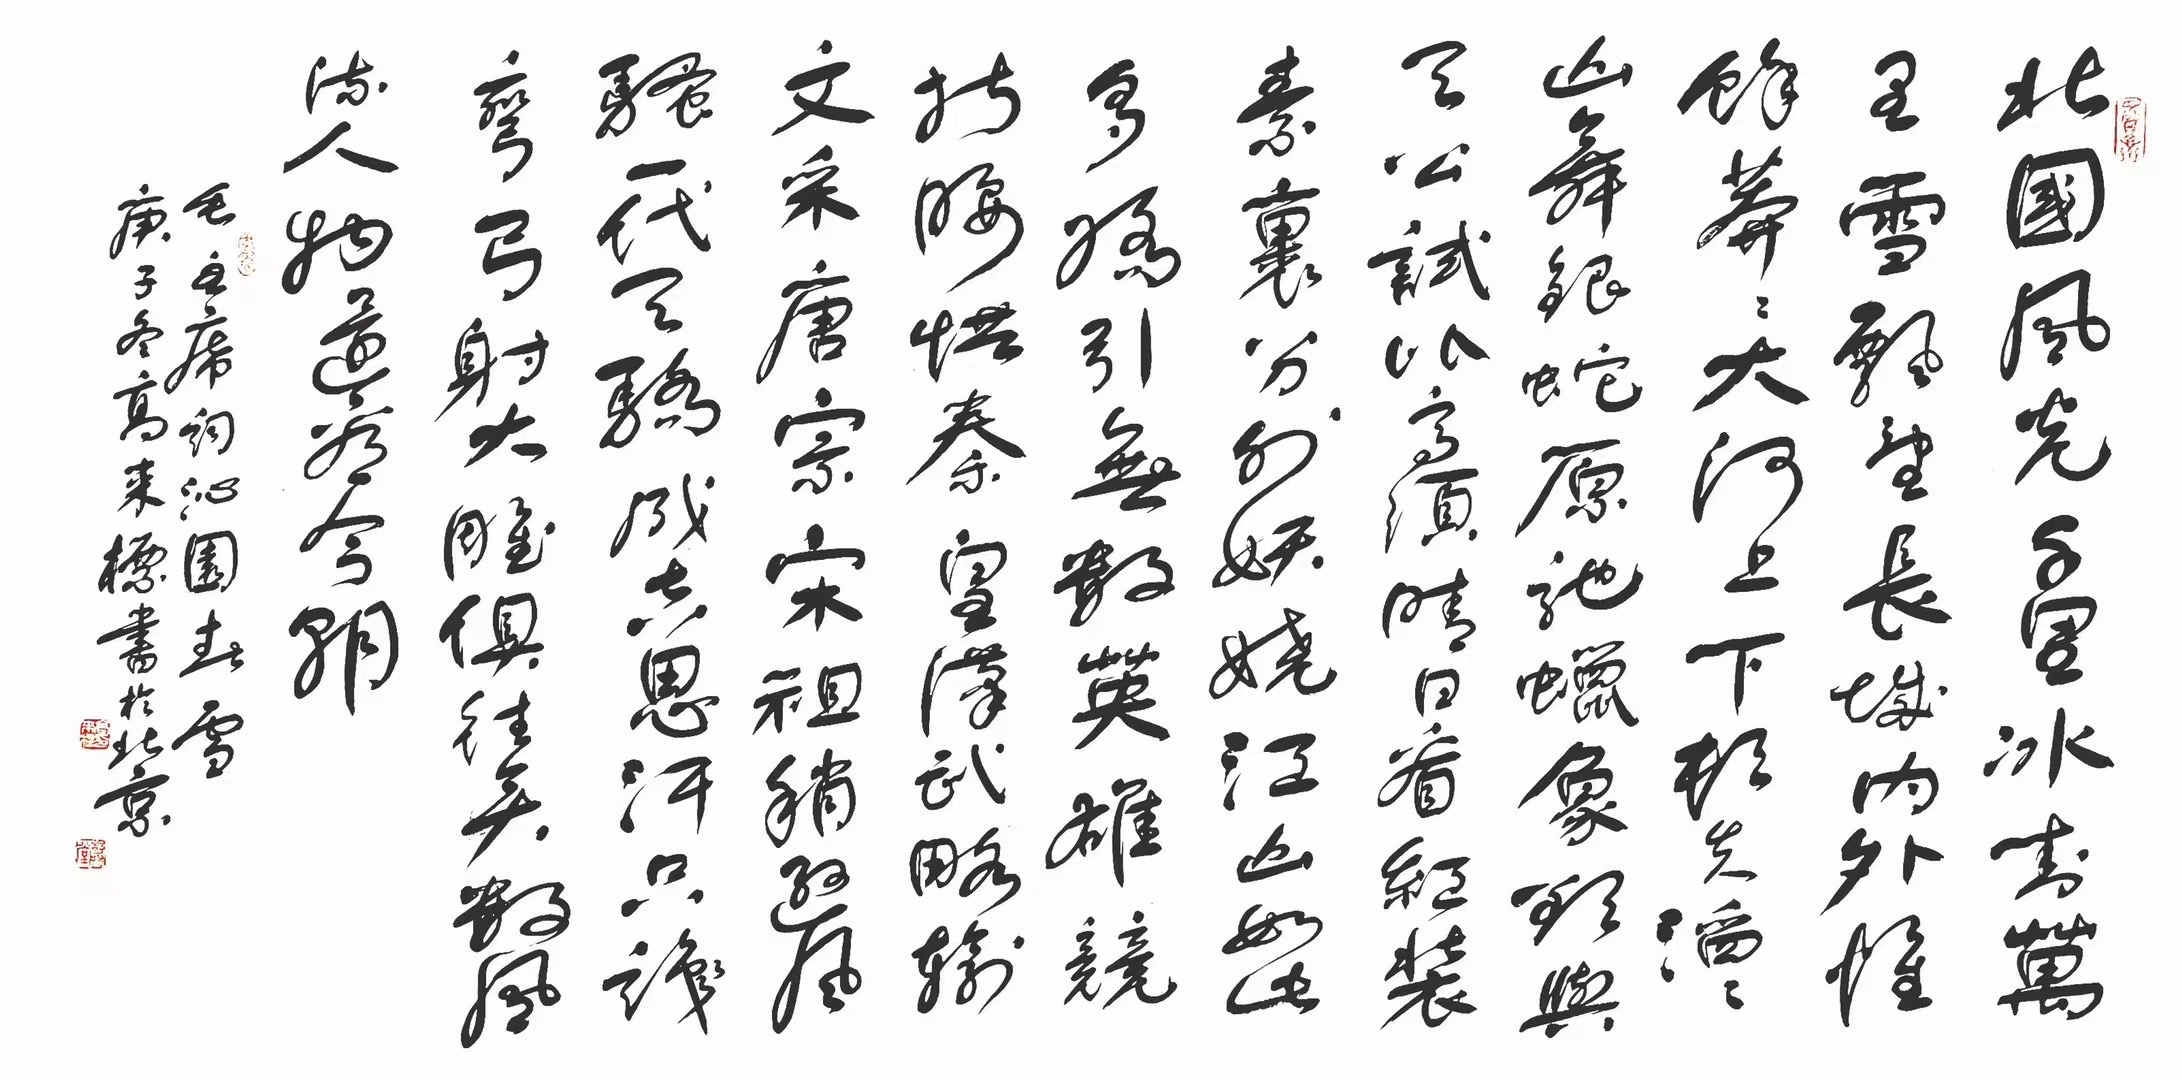 北國風光千里冰封萬
里雪飄望長城內外惟
餘莽〻大河上下頓失滔〻
山舞銀蛇原馳蠟象欲與
天公試比高須晴日看紅裝
素裹分外妖嬈江山如此
多嬌引無數英雄競
折腰惜秦皇漢武略輸
文采唐宗宋祖稍遜風
騷一代天驕成吉思汗只識
彎弓射大雕俱往矣數風
流人物還看今朝
毛主席詞沁園春雪
庚子冬高来標書於北京